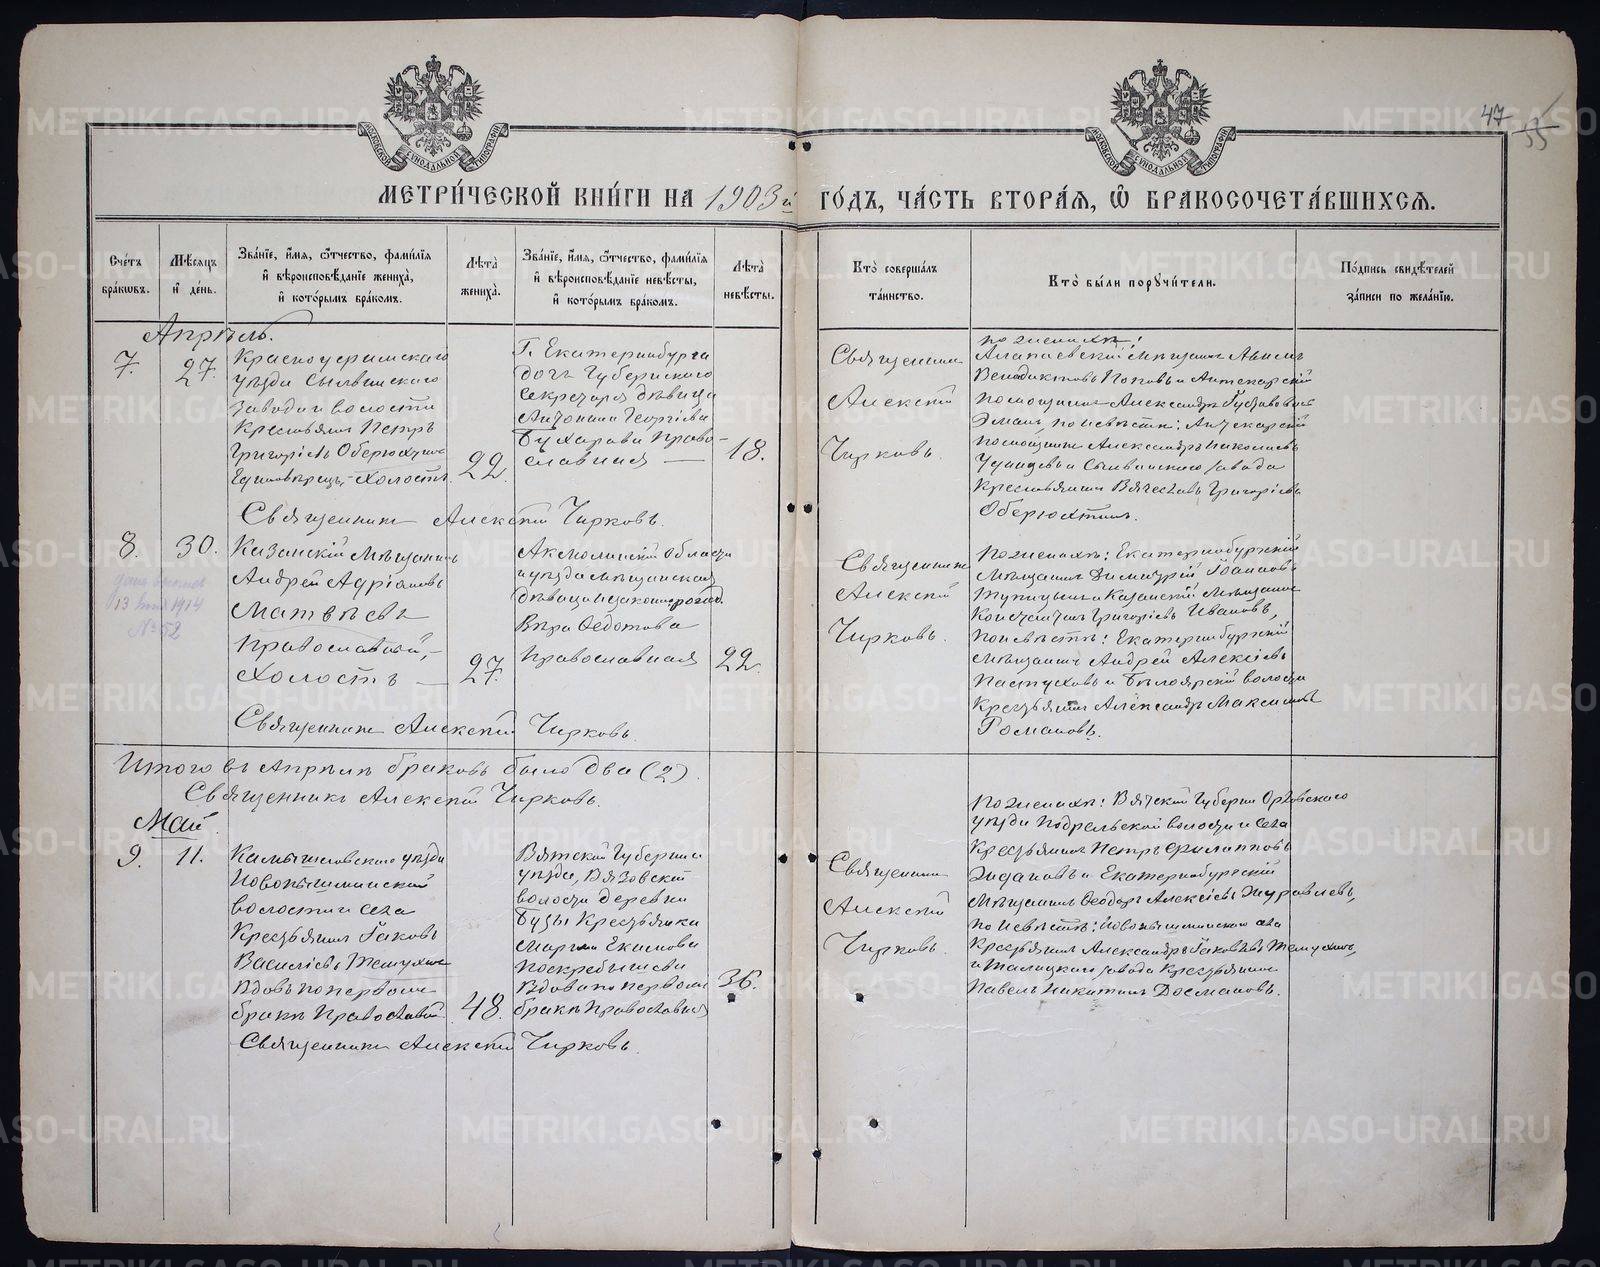 МЕТРИ́ЧЕСКОЙ КНИ́ГИ НА 1903й ГО́ДЪ, ЧА́СТЬ ВТОРА́Ѧ, Ѽ БРАКОСОЧЕТА́ВШИХСѦ.
47
55
МОСКОВСКОЙ СѴНОДАЛЬНОЙ ТИПОГРАФІИ
МОСКОВСКОЙ СѴНОДАЛЬНОЙ ТИПОГРАФІИ
Сче́тъ бра́кѡвъ.
Мѣ́сѧцъ и҆ де́нь.
Зва́нїе, и҆́мѧ, ѻ҆́тчество, фами́лїѧ
и҆ вѣроисповѣ́данїе жениха̀,
и҆ кото́рымъ бра́комъ.
Лѣ̑та
жениха̀.
Зва́нїе, и҆́мѧ, ѻ҆́тчество, фами́лїѧ
и҆ вѣроисповѣ́данїе невѣ́сты,
и҆ кото́рымъ бра́комъ.
Лѣ̑та
невѣ́сты.
Кто̀ соверша́лъ
та́инство.
Кто̀ бы́ли порꙋчи́тели.
По́дпись свидѣ́телей
за́писи по жела́нїю.
Апрѣль.
7.
27.
Красноуфимскаго
уѣзда Сылвинскаго
завода и волости
крестьянинъ Петръ
Григоріевъ Оберюхтинъ
Единовѣрецъ, холостъ
22.
Г. Екатеринбурга
дочь Губернскаго
Секретаря дѣвица
Антонина Георгіева
Бухарова Право-
славная —
18.
Священникъ
Алексій
Чирковъ.
по женихѣ:
Алапаевскій мѣщанинъ
Венедиктовъ Поповъ и Аптекарскій
помощникъ Александръ Густавовичъ
по невѣстѣ: Аптекарскій
помощникъ Александръ Николаевъ
и Сылвинскаго завода
крестьянинъ Вячеславъ Григоріевъ
Оберюхтинъ.
Священникъ Алексій Чирковъ.
8.
30.
13
1914
№ 52
Казанскій мѣщанинъ
Андрей Адріановъ
Матвѣевъ
православный, —
холостъ —
27.
Акмолинской области
и уѣзда мѣщанская
дѣвица незаконнорожд.
Вѣра Федотова
православная
22.
Священникъ
Алексій
Чирковъ.
По женихѣ: Екатеринбургскій
мѣщанинъ Димитрій Іоанновъ
Тупицынъ и Казанскій мѣщанинъ
Константинъ Григоріевъ Ивановъ,
По невѣстѣ: Екатеринбургскій
мѣщанинъ Андрей Алексѣевъ
Пастуховъ и Бѣлоярской волости
крестьянинъ Александръ Максимовъ
Романовъ.
Священникъ Алексій Чирковъ.
Итого въ Апрѣлѣ браковъ было два (2).
Священникъ Алексій Чирковъ.
Май.
9.
11.
Камышловскаго уѣзда
Новопышминской
волости и села
крестьянинъ Іаковъ
Василіевъ
вдовъ по первомъ
бракѣ Православный
48.
Вятской Губерніи
уѣзда, Вязовской
волости деревни
крестьянка
Екимова
Поскребышева
вдова по первомъ
бракѣ Православная
36.
Священникъ
Алексій
Чирковъ.
По женихѣ: Вятской Губерніи Орловскаго
уѣзда Подрельской волости и села
крестьянинъ Петръ Филипповъ
и Екатеринбургскій
мѣщанинъ Феодоръ Алексѣевъ Журавлевъ,
по невѣстѣ: Новопышминскаго села
крестьянинъ Александръ Іаковлевъ
и Талицкаго завода крестьянинъ
Павелъ Никитинъ
Священникъ Алексій Чирковъ.
METRIKI.GASO-URAL.RU